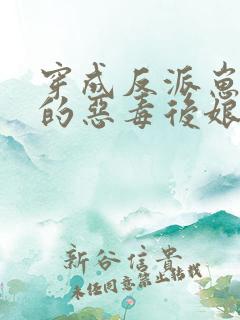 穿成反派崽
的惡毒後娘
新谷信貴
未经同意禁止转载